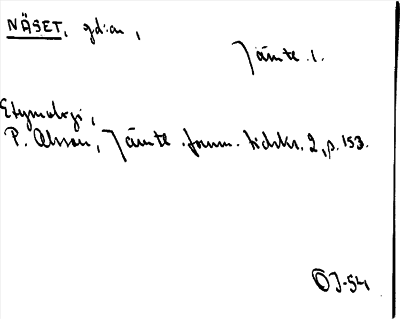 NÄSET, gd:an,
Jämtl.
Etymologi,
P. Olsson, Jämtl. fornm. tidskr. 2, p. 153.
ÖJ-54